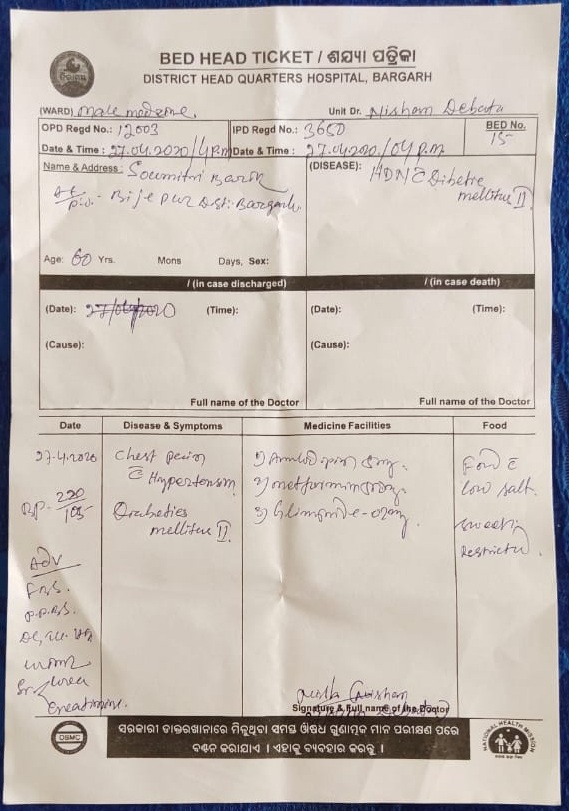 BED HEAD TICKET / ଶଯ୍ୟା ପତ୍ରିକା
DISTRICT HEAD QUARTERS HOSPITAL, BARGARH
(WARD) male medicine. Unit Dr. Nisham Debata
OPD Regd No.: 12003 IPD Regd No.: 3650 BED No. 15
Date & Time : 27.04.2020/4Pm Date & Time : 27.04.2020/04 p.m
Name & Address : Soumitri Barik (DISEASE): HDN C̄ Dibetie
At/P.O.- Bijepur Dist: Bargarh. mellitus II
Age: 60 Yrs. Mons Days, Sex:
/ (in case discharged) / (in case death)
(Date): 27/04/2020 (Time): (Date): (Time):
(Cause): (Cause):
Full name of the Doctor Full name of the Doctor
Date Disease & Symptoms Medicine Facilities Food
27-4-2020 Chest pain 1) Amlodipin 5mg. Food C̄
C̄ Hypertension 2) metformin low salt.
BP- 220/105 Diabeties 3) sweet
mellitus II restricted.
ADV
F.B.S.
P.P.B.S.
urea
Creatinine.
Signature & Full name of the Doctor
OSMC
ସରକାରୀ ଡାକ୍ତରଖାନାରେ ମିଳୁଥିବା ସମସ୍ତ ଔଷଧ ଗୁଣାତ୍ମକ ମାନ ପରୀକ୍ଷଣ ପରେ
ବଣ୍ଟନ କରାଯାଏ । ଏହାକୁ ବ୍ୟବହାର କରନ୍ତୁ ।
NATIONAL HEALTH MISSION